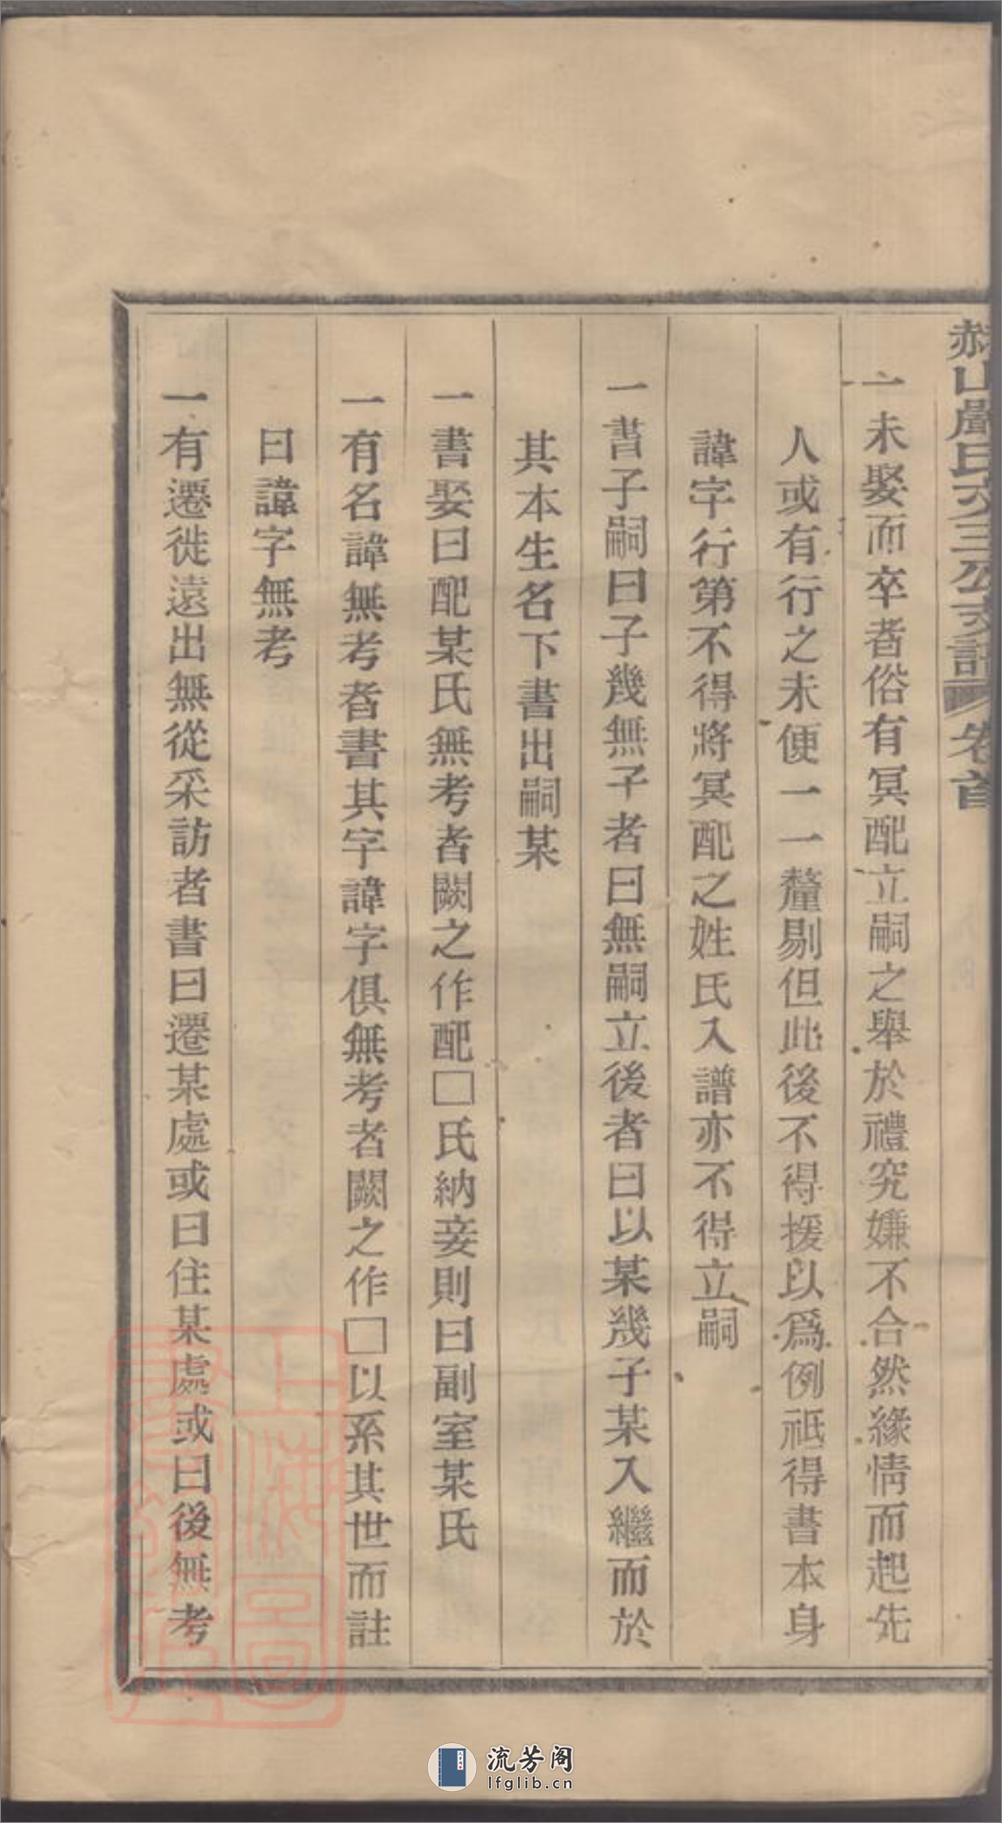 赫山嚴氏文三公支譜 卷首
一未娶而卒者俗有冥配立嗣之舉於禮究嫌不合然緣情而起先
人或有行之未便一一釐剔但此後不得援以爲例祗得書本身
諱字行第不得將冥配之姓氏入譜亦不得立嗣
一書子嗣曰子幾無子者曰無嗣立後者曰以某幾子某入繼而於
其本生名下書出嗣某
一書娶曰配某氏無考者闕之作配□氏納妾則曰副室某氏
一有名諱無考者書其字諱字俱無考者闕之作□以系其世而註
曰諱字無考
一有遷徙遠出無從采訪者書曰遷某處或曰住某處或曰後無考
上海圖書館藏
流芳阁
lfglib.cn